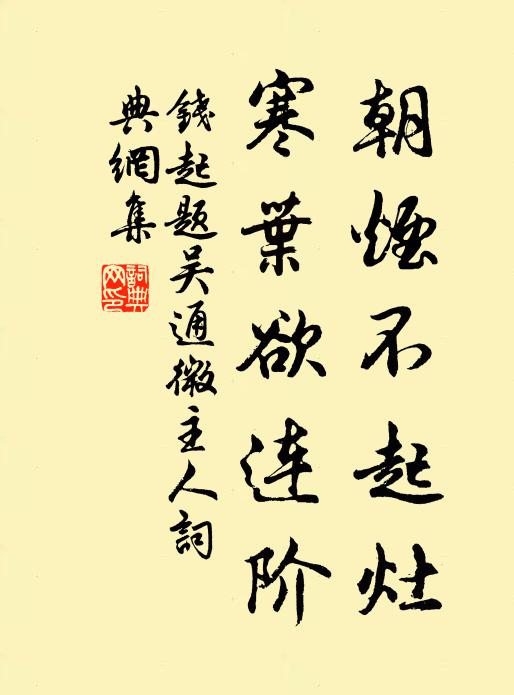 朝煙不起灶
寒葉欲連阶
錢起题吴通微主人詞
典網集
詞典网印